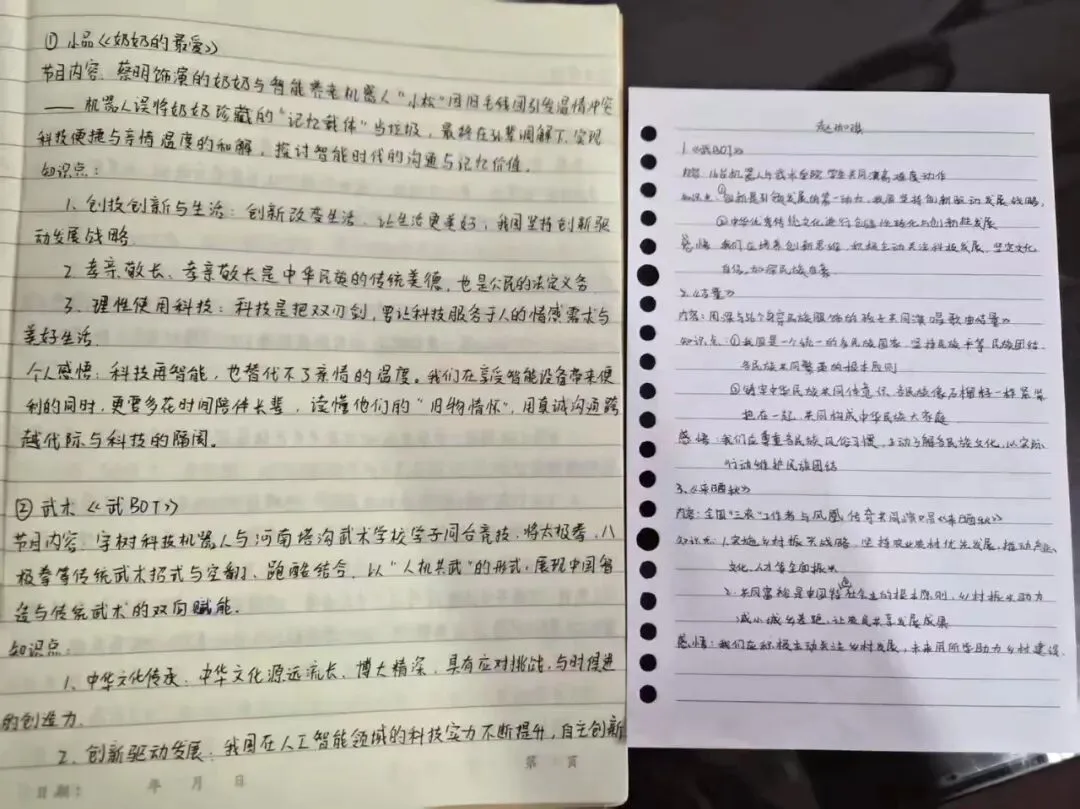 ① 小品《奶奶的最爱》
节目内容: 蔡明饰演的奶奶与智能养老机器人"小松"因旧毛线团引发温情冲突
—— 机器人误将奶奶珍藏的"记忆载体"当垃圾, 最终在孙辈调解下, 实现
科技便捷与亲情温度的和解, 探讨智能时代的沟通与记忆价值.
知识点:
1. 创技创新与生活: 创新改变生活, 让生活更美好, 我国坚持创新驱
动发展战略.
2. 孝亲敬长、孝亲敬长是中华民族的传统美德, 也是公民的法定义务
3. 理性使用科技: 科技是把双刃剑, 要让科技服务于人的情感需求与
美好生活.
个人感悟: 科技再智能, 也替代不了亲情的温度。我们在享受智能设备带来便
利的同时, 更要多花时间陪伴长辈, 读懂他们的"旧物情怀", 用真诚沟通跨
越代际与科技的隔阂。
② 武术《武BOT》
节目内容: 宇树科技机器人与河南塔沟武术学校学子同台竞技, 将太极拳, 八
极拳等传统武术招式与空翻、跑酷结合, 以"人机共武"的形式, 展现中国智
造与传统武术的双向赋能.
知识点:
1. 中华文化传承: 中华文化源远流长、博大精深, 具有应对挑战, 与时俱进
的创造力.
2. 创新驱动发展: 我国在人工智能领域的科技实力不断提升, 自主创新
日期: 年 月 日
第 页
1.《武BOT》
内容: 机器人与武术学院学生共同演高难度动作
知识点: ①创新是引领发展的第一动力, 我国坚持创新驱动发展战略,
②中华优秀传统文化进行创造性转化与创新性发展
感悟: 我们应培养创新思维, 积极主动关注科技发展, 坚定文化
自信, 加深民族自豪
2.
内容: 周深与56个身穿民族服饰的孩子共同演唱歌曲
知识点: ①我国是一个统一的多民族国家, 坚持民族平等 民族团结
各民族共同繁荣的根本原则
②铸牢中华民族共同体意识, 各民族像石榴籽一样紧紧
抱在一起, 共同构成中华民族大家庭
感悟: 我们应尊重各民族风俗习惯, 主动了解各民族文化, 以实际
行动维护民族团结
3.
内容: 全国"三农"工作者与凤凰传奇共同演唱
知识点: 1.实施乡村振兴战略, 坚持农业农村优先发展, 推动产业、
文化、人才等全面振兴
2. 共同富裕是中国特色社会主义的根本原则, 乡村振兴助力
减小城乡差距, 让农民共享发展成果
感悟: 我们应积极主动关注乡村发展, 未来用所学助力乡村建设.